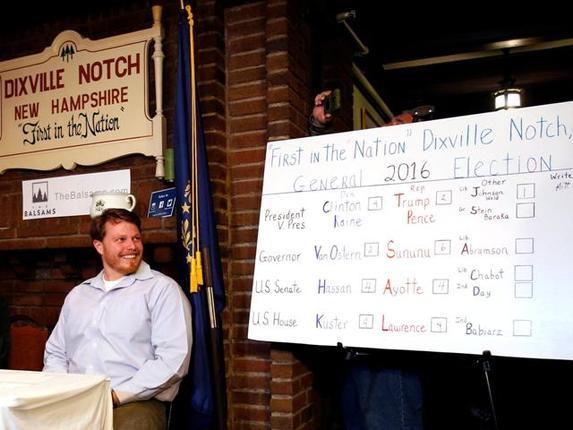 DIXVILLE NOTCH
NEW HAMPSHIRE
"First in the Nation"
THE BALSAMS
TheBalsams.com
"First in the "Nation" Dixville Notch,
General 2016 Election
Dem Rep Other Write
President Clinton 4 Trump 2 Lib Johnson Weld 1 Mitt
V. Pres Kaine Pence Gr Stein Baraka
Governor Van Ostern 2 Sununu 6 Lib Abramson
U.S. Senate Hassan 4 Ayotte 4 Lib Chabot
Ind Day
U.S. House Kuster 4 Lawrence 4 Ind Babiarz